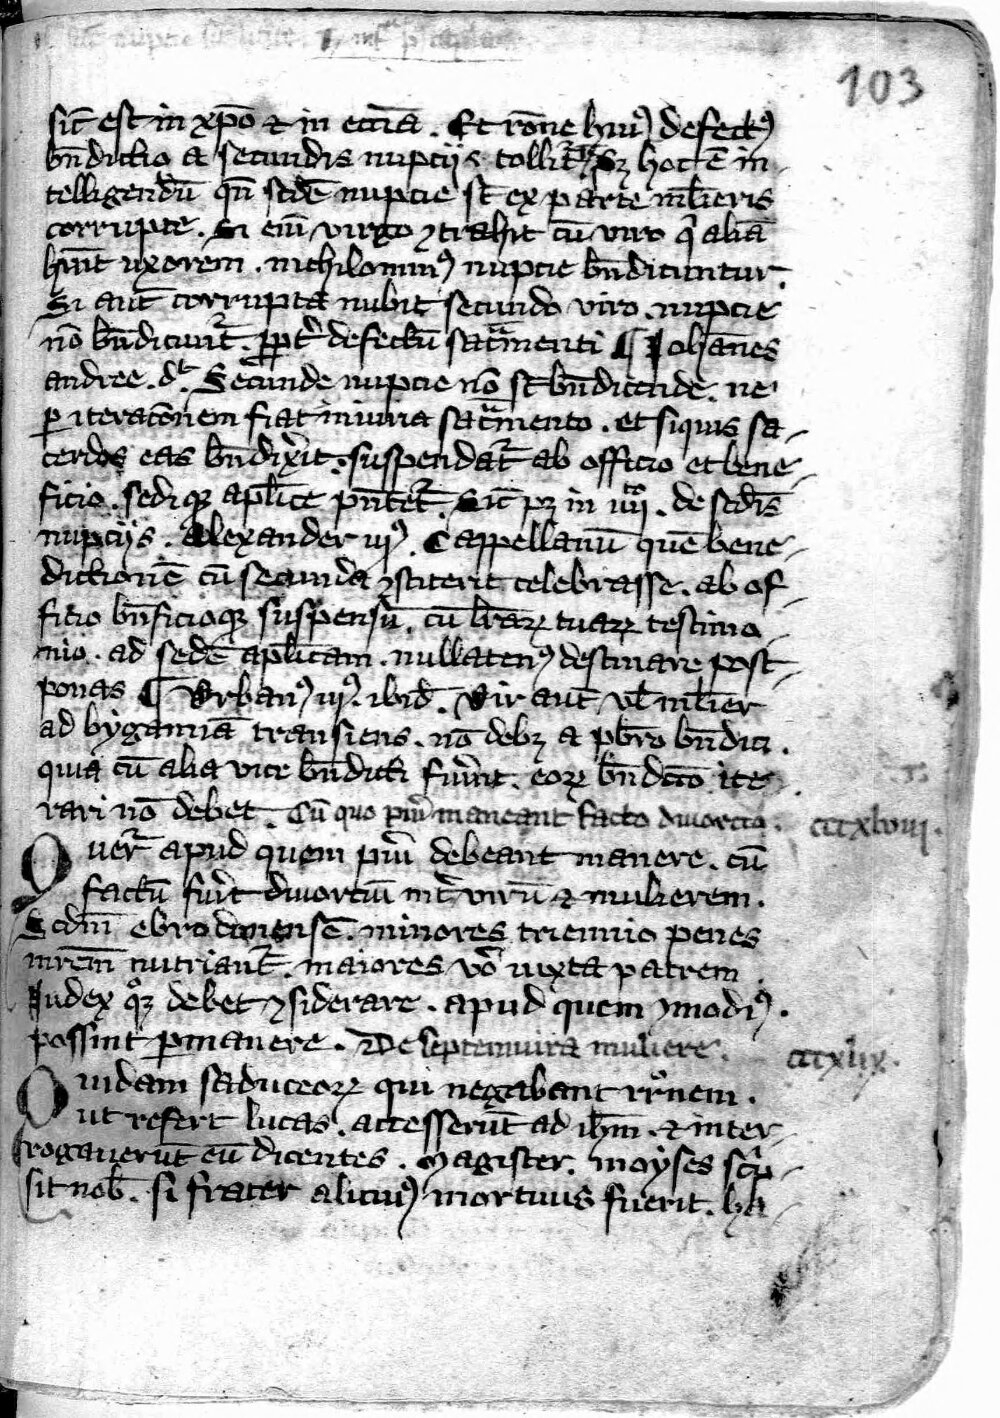 103
sic̄ est in xp̄o ⁊ in ecc̄ia . Et rōne huiꝰ defectꝰ
bn̄dictio a secundis nuptiis tollit᷑ Sꝫ hoc ē in-
telligendū qn̄ scd̄e nuptie st̄ ex parte ml̄ieris
corrupte . Si eni virgo ꝯtrahit cū viro q̄ aliā
hūit uxorem . nichilominꝰ nuptie bn̄dicuntur .
Si aut̄ corrupta nubit secundo viro . nuptie
nō bn̄dicūt᷑ . ꝓpt̄ defectū sac̄menti ¶ Ioh̄anes
andree . dt̄ . Secunde nuptie nō st̄ bn̄dicende . ne
ꝑ iteratōnem fiat iniuria sac̄mento . et siquis sa-
cerdos eas bn̄dix̄it . suspendat᷑ ab officio et bene-
ficio . sediqꝫ apl̄ice pn̄tet᷑ . Sic̄ pꝫ in iiii᷒ . de scd̄is
nuptiis . Alexander iiiꝰ . Cappellanū quē bene-
dictionē cū secunda ꝯstiterit celebrasse . ab of-
ficio bn̄ficioqꝫ suspensū . cū l̄raꝝ tuaꝝ testimo-
nio . ad sedē apl̄icam . nullatenꝰ destinare post-
ponas ¶ Urbanꝰ iiiꝰ . ibid̄ . Vir aut̄ vl̄ ml̄ier
ad bygamiā transiens . nō debꝫ a pb̄ro bn̄dici .
quia cū alia vice bn̄dicti fuer̄it . eoꝝ bn̄dcc̄o ite-
rari nō debet . Cū quo pueri maneant facto divortio .
cccxlviii .
Quer᷑ apud quem pueri debeant manere . cū
factū fuer̄it divortiū int̄ virū ⁊ mulierem .
Scdm̄ ebrodunensē . minores triennio penes
mr̄em nutriant᷑ . maiores vo̊ iuxta patrem .
Iudex qͦꝫ debet ꝯsiderare . apud quem ꝯmodiꝰ .
possint ꝑmanere . De septemvira muliere .
cccxlix .
Quidam saduceoꝝ qui negabant r̄r̄nem .
ut refert lucas . accesserūt ad ih̄m . ⁊ inter-
rogaverūt eū dicentes . Magister . moyses scp̄-
sit nob̄ . si frater alicuiꝰ mortuus fuerit . ha-